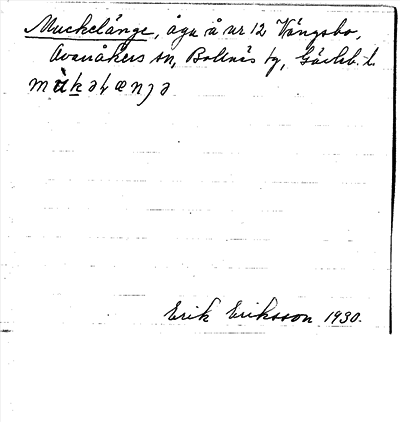 Muckelänge, äga å nr 12 Vängsbo,
Avanåkers sn, Bollnäs tg, Gävleb. l.
Erik Eriksson 1930.